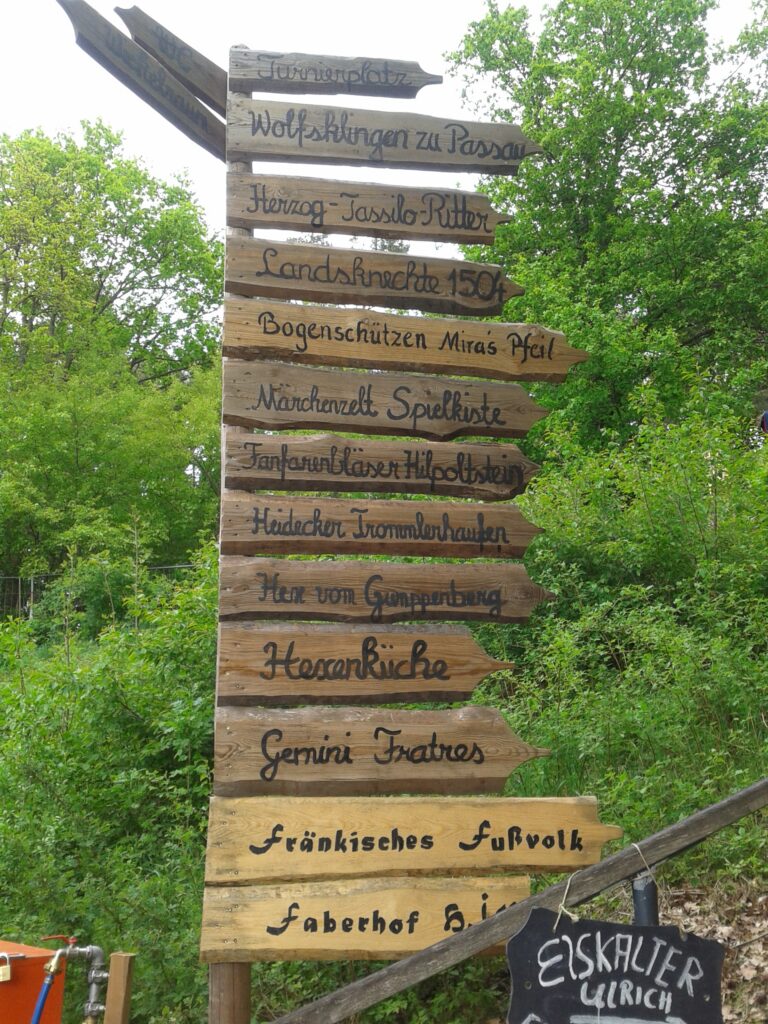 WC
Wickelraum
Turnierplatz
Wolfsklingen zu Passau
Herzog-Tassilo-Ritter
Landsknechte 1504
Bogenschützen Mira's Pfeil
Märchenzelt Spielkiste
Fanfarenbläser Hilpoltstein
Heidecker Trommlenhaufen
Hexe vom Gumppenberg
Hexenküche
Gemini Fratres
Fränkisches Fußvolk
Faberhof
EISKALTER
ULRICH